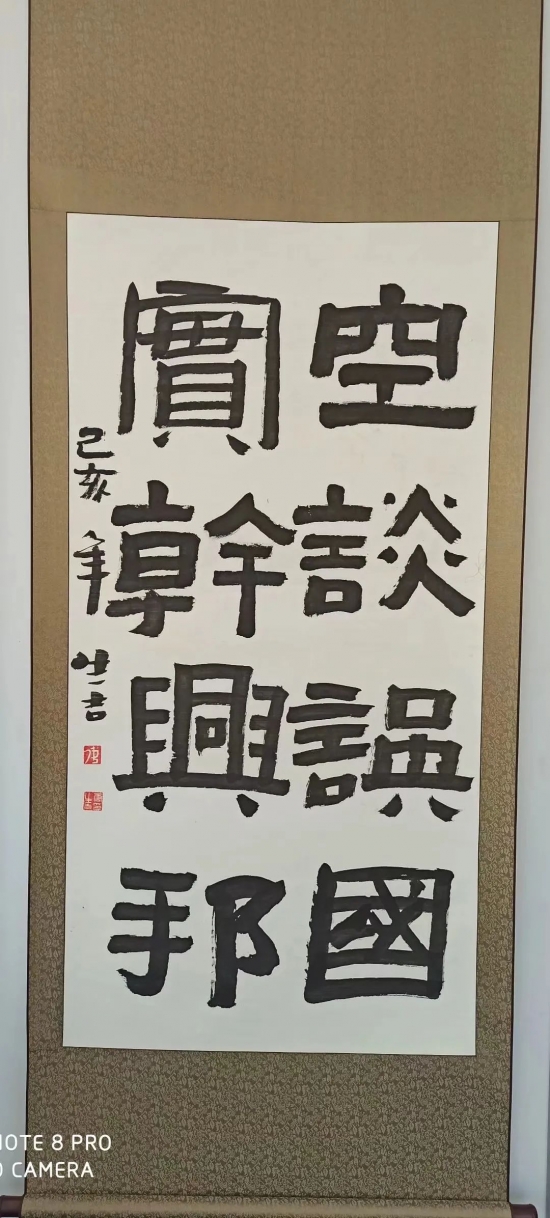 空談誤國
實幹興邦
己亥年
NOTE 8 PRO
CAMERA